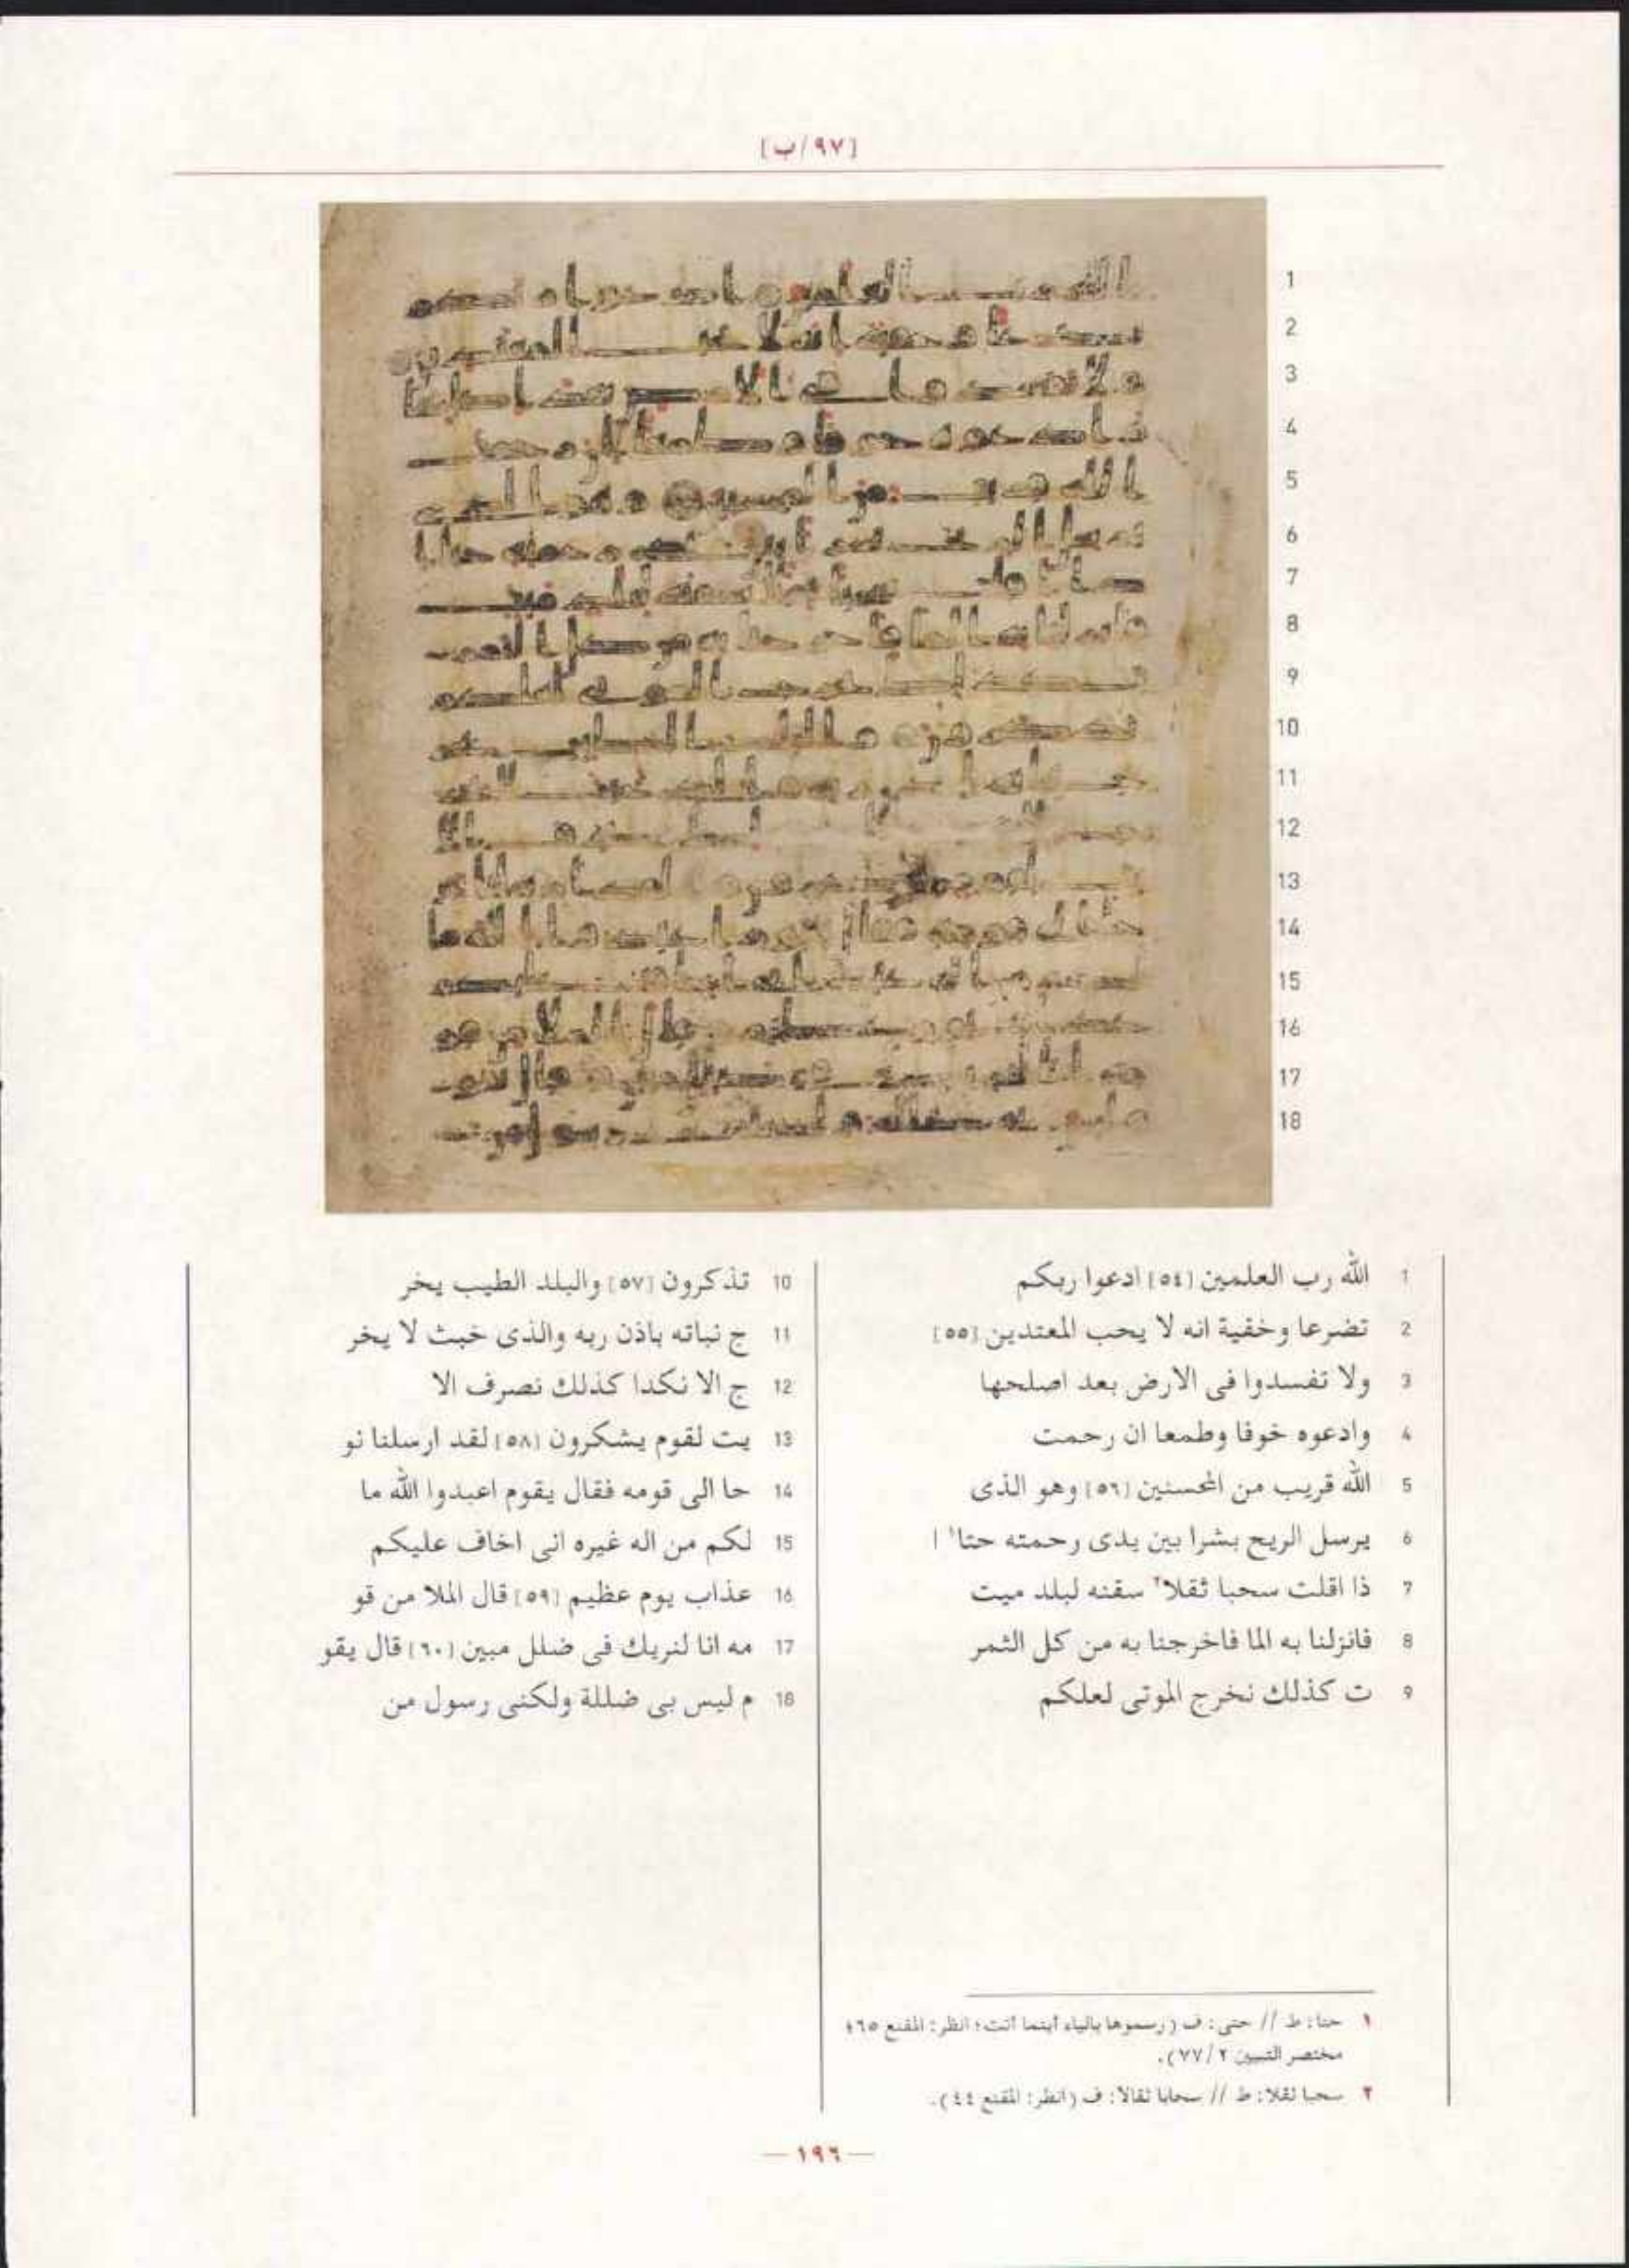 [٩٧/ب]
1 الله رب العلمين [٥٤] ادعوا ربكم
2 تضرعا وخفية انه لا يحب المعتدين [٥٥]
3 ولا تفسدوا فى الارض بعد اصلحها
4 وادعوه خوفا وطمعا ان رحمت
5 الله قريب من المحسنين [٥٦] وهو الذى
6 يرسل الريح بشرا بين يدى رحمته حتا١ ا
7 ذا اقلت سحبا ثقلا٢ سقنه لبلد ميت
8 فانزلنا به الما فاخرجنا به من كل الثمر
9 ت كذلك نخرج الموتى لعلكم
10 تذكرون [٥٧] والبلد الطيب يخر
11 ج نباته باذن ربه والذى خبث لا يخر
12 ج الا نكدا كذلك نصرف الا
13 يت لقوم يشكرون [٥٨] لقد ارسلنا نو
14 حا الى قومه فقال يقوم اعبدوا الله ما
15 لكم من اله غيره انى اخاف عليكم
16 عذاب يوم عظيم [٥٩] قال الملا من قو
17 مه انا لنريك فى ضلل مبين [٦٠] قال يقو
18 م ليس بى ضللة ولكنى رسول من
١ حتا: ط // حتى: ف (رسموها بالياء أينما أتت؛ انظر: المقنع ٦٥؛
مختصر التبيين ٢/٧٧).
٢ سحبا ثقلا: ط // سحابا ثقالا: ف (انظر: المقنع ٤٤).
— ١٩٦ —